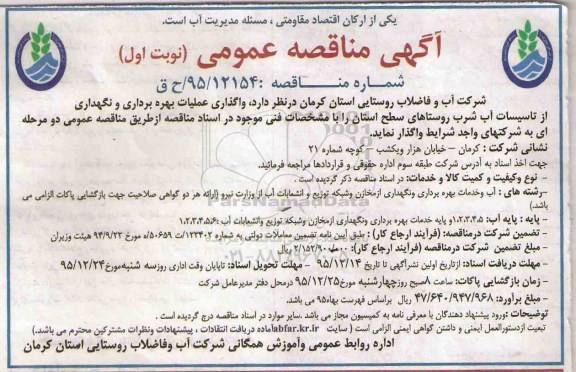 یکی از ارکان اقتصاد مقاومتی ، مسئله مدیریت آب است.
آگهی مناقصه عمومی (نوبت اول)
شماره مناقصه :۹۵/۱۲۱۵۴/ح ق
شرکت آب و فاضلاب روستایی استان کرمان درنظر دارد، واگذاری عملیات بهره برداری و نگهداری
از تاسیسات آب شرب روستاهای سطح استان را با مشخصات فنی موجود در اسناد مناقصه ازطریق مناقصه عمومی دو مرحله
ای به شرکتهای واجد شرایط واگذار نماید.
نشانی شرکت : کرمان – خیابان هزار ویکشب – کوچه شماره ۲۱
جهت اخذ اسناد به آدرس شرکت طبقه سوم اداره حقوقی و قراردادها مراجعه فرمائید.
- نوع وکیفیت و کمیت کالا و خدمات: در اسناد مناقصه ذکر گردیده است .
-رشته های : آب وخدمات بهره برداری ونگهداری ازمخازن وشبکه توزیع و انشعابات آب از وزارت نیرو (ارائه هر دو گواهی صلاحیت جهت بازگشایی پاکات الزامی می
باشد).
پایه : پایه آب: ۱،۲،۳،۴،۵و پایه خدمات بهره برداری ونگهداری ازمخازن وشبکه توزیع وانشعابات آب :۱،۲،۳،۴،۵،۶
تضمین شرکت درمناقصه: (فرآیند ارجاع کار) : طبق آیین نامه تضمین معاملات دولتی به شماره ۱۲۳۴۰۲/ت ۵۰۶۵۹ه مورخ ۹۴/۹/۲۲ هیئت وزیران
مبلغ تضمین شرکت درمناقصه (فرآیند ارجاع کار): ۲/۱۵۲/۹۰۰/۰۰۰ ریال
مهلت دریافت اسناد: ازتاریخ اولین نشرآگهی تا تاریخ ۹۵/۱۲/۱۴ - مهلت تحویل اسناد: تاپایان وقت اداری روزسه شنبه مورخ ۹۵/۱۲/۲۴
زمان بازگشایی پاکات: ساعت ۸صبح روزچهارشنبه مورخ ۹۵/۱۲/۲۵ درمحل دفتر مدیرعامل شرکت
مبلغ برآورد: ۴۷/۶۴۰/۹۴۷/۹۶۸ ریال براساس فهرست بهاء ۹۵ می باشد.
توضیحات :ورود پیشنهاد دهندگان با معرفی نامه به کمیسیون مجاز می باشد .سایر موارد در اسناد مناقصه درج گردیده است .
تبعیت ازدستورالعمل ایمنی و داشتن گواهی ایمنی الزامی است ( سایت abfar.kr.ir آماده دریافت انتقادات ، پیشنهادات ونظرات مشترکین محترم می باشد.)
اداره روابط عمومی وآموزش همگانی شرکت آب وفاضلاب روستایی استان کرمان
ParsNamadData